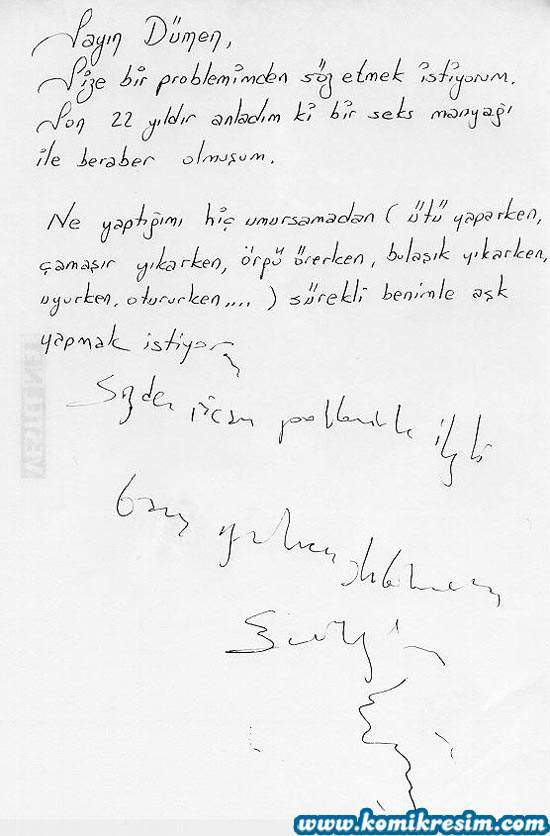 Sayın Dümen,
Size bir problemimden söz etmek istiyorum.
Son 22 yıldır anladım ki bir seks manyağı
ile beraber olmuşum.
Ne yaptığımı hiç umursamadan ( ütü yaparken,
çamaşır yıkarken, örpü örerken, bulaşık yıkarken,
uyurken, otururken,... ) sürekli benimle aşk
yapmak istiyor
Sizden ricam problemimle ilgili
bana
www.komikresim.com